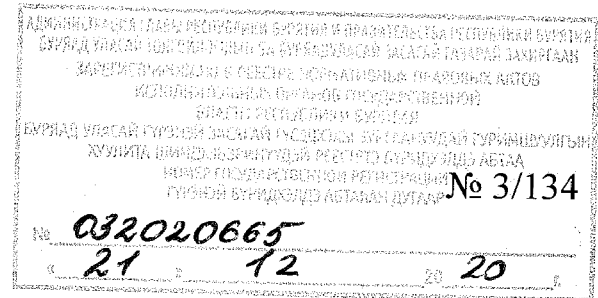 АДМИНИСТРАЦИЯ ГЛАВЫ РЕСПУБЛИКИ БУРЯТИЯ И ПРАВИТЕЛЬСТВА РЕСПУБЛИКИ БУРЯТИЯ
БУРЯАД УЛАСАЙ БУРЯАД УЛАСАЙ ЗАСАГАЙ ГАЗАРАЙ ЗАХИРГААН
ЗАРЕГИСТРИРОВАНО В РЕЕСТРЕ НОРМАТИВНЫХ ПРАВОВЫХ АКТОВ
ИСПОЛНИТЕЛЬНЫХ ОРГАНОВ ГОСУДАРСТВЕННОЙ
ВЛАСТИ РЕСПУБЛИКИ БУРЯТИЯ
БУРЯАД УЛАСАЙ ГҮРЭНЭЙ ЗАСАГАЙ
РЕЕСТРТЭ БҮРИДХЭЛДЭ АБТАА
НОМЕР ГОСУДАРСТВЕННОЙ РЕГИСТРАЦИИ
ГҮРЭНЭЙ БҮРИДХЭЛДЭ АБТАҺАН ДУГААР № 3/134
№ 032020665
« 21 » 12 20 20 г.